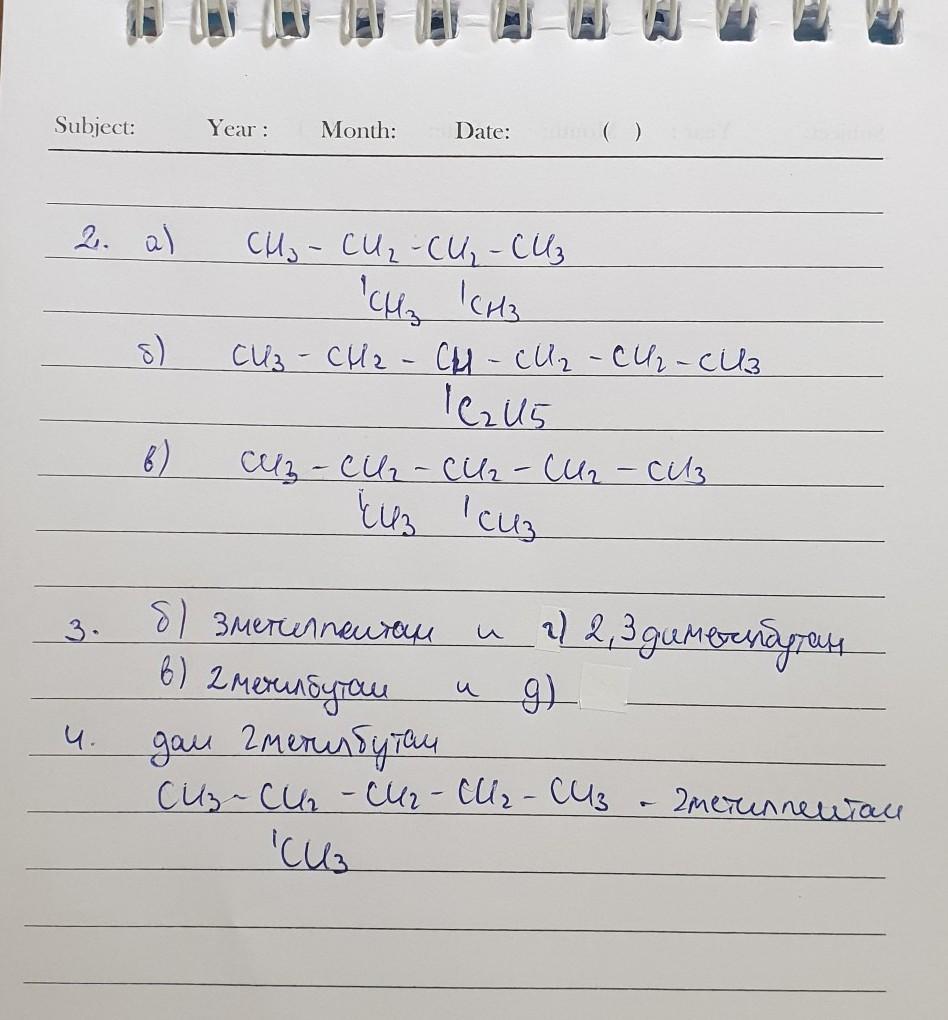 Subject: Year : Month: Date: ( )
2. а) CH3 - CH2 - CH2 - CH3
CH3 CH3
б) CH3 - CH2 - CH - CH2 - CH2 - CH3
C2H5
в) CH3 - CH2 - CH2 - CH2 - CH3
CH3 CH3
3. б) 3метилпентан и г) 2,3диметилбутан
в) 2метилбутан и д)
4. дан 2метилбутан
CH3 - CH2 - CH2 - CH2 - CH3 - 2метилпентан
CH3